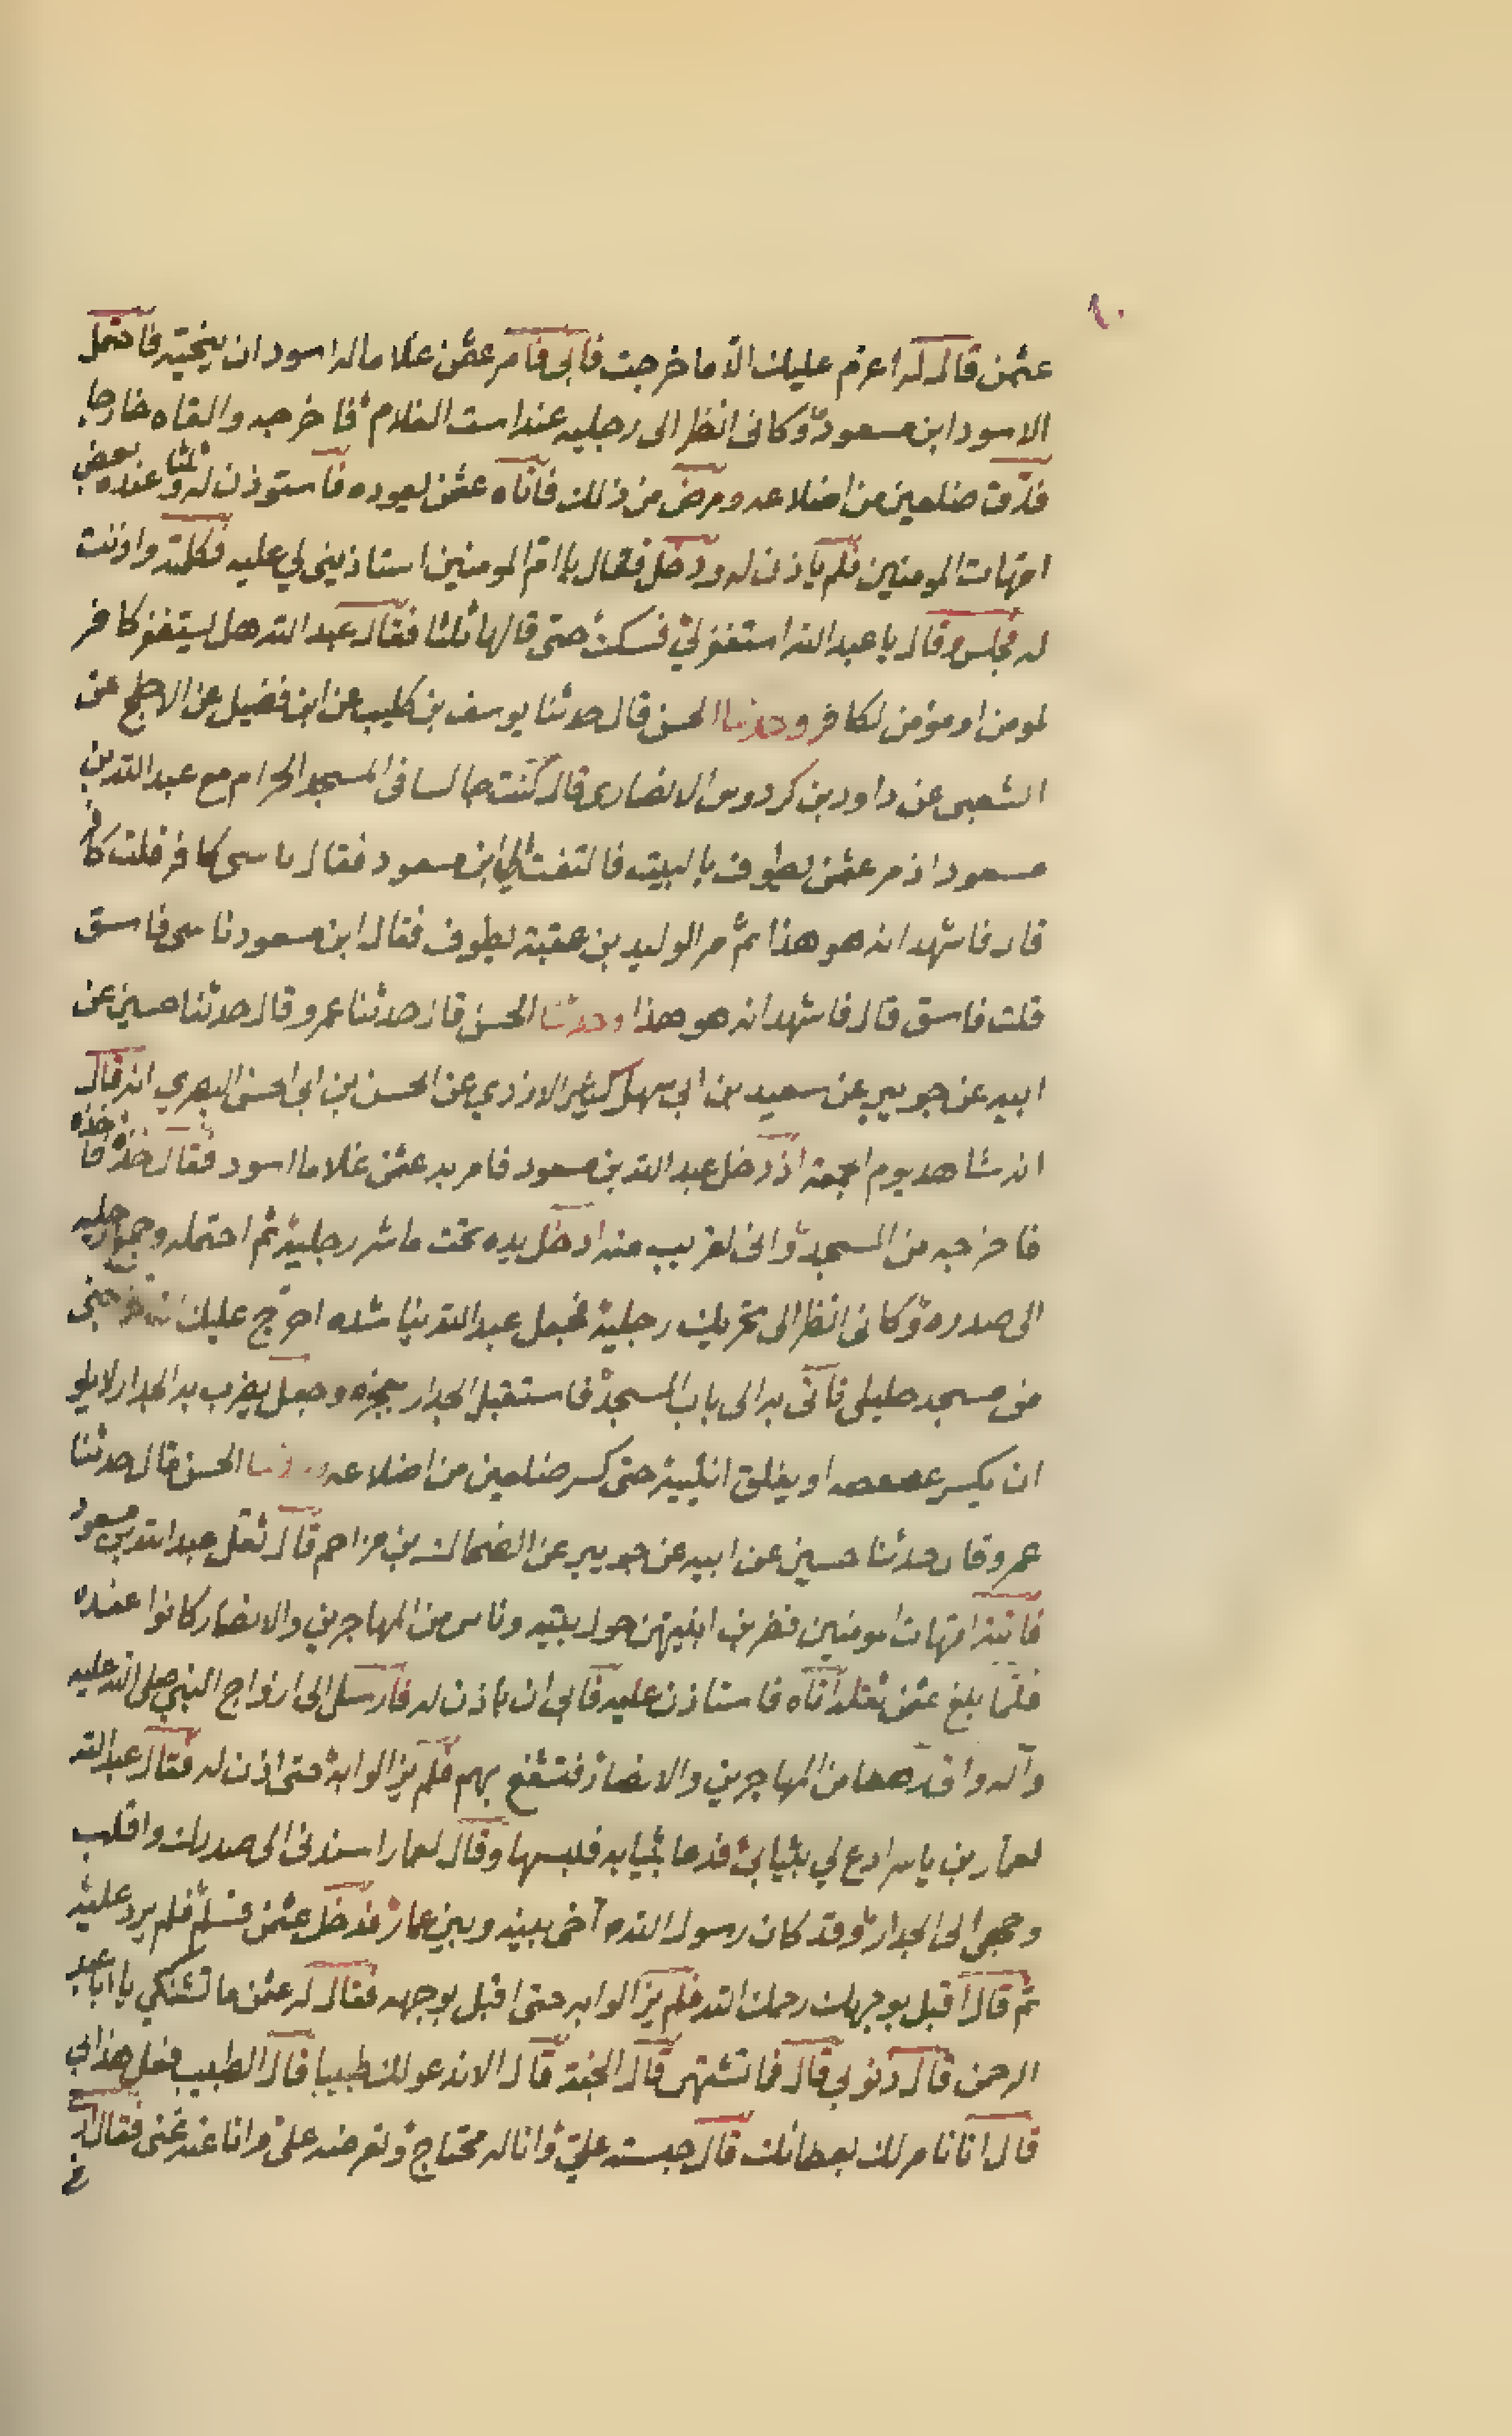 ١٠
عثمن قال له اعزم عليك الّا ما خرجت فابى فامر عثمن غلاما له اسود ان ينحيّه فاحتمل
الاسود ابن مسعود وكانى انظر الى رجليه عند است الغلام فاخرجه والقاه خارجا
فدقّ ضلعين من اضلاعه ومرض من ذلك فاتاه عثمن ليعوده فاستوذن له ثلثا وعنده بعض
امّهات المومنين فلم ياذن له ودخل فقال يا امّ المومنين استاذنينى لي عليه فكلمته واذنت
له فجلس وقال يا عبد الله استغفر لي فسكت حتى قالها ثلثا فقال عبد الله هل يستغفر كافر
لمومن او مؤمن لكافر وحدثنا الحسن قال حدثنا يوسف بن كليب عن ابن فضيل عن الاجلح عن
الشعبى عن داود بن كردوس الانصارى قال كنت جالسا فى المسجد الحرام مع عبد الله بن
مسعود اذ مر عثمن يطوف بالبيت فالتفت الي ابن مسعود فقال ما سمى كافر قلت كافر
قال فاشهد انه هو هذا ثم مر الوليد بن عقبة يطوف فقال ابن مسعود ما سمى فاسق
قلت فاسق قال فاشهد انه هو هذا وحدثنا الحسن قال حدثنا عمرو قال حدثنا حسين عن
ابيه عن جويبر عن سعيد بن ابي سهل كثير الازدي عن الحسن بن ابى الحسن البصري انه قال
انه شاهد يوم الجمعة اذ دخل عبد الله بن مسعود فامر به عثمن غلاما اسود فقال خذه فاخذه
فاخرجه من المسجد وانى لقريب منه ادخل يده تحت رجليه ثم احتمله وجمع رجليه
الى صدره وكانى انظر الى تحريك رجليه فجعل عبد الله يناشده احرّج عليك ان تخرجنى
من مسجد خليلى فاتى به الى باب المسجد فاستقبل الجدار بعجزه وجعل يضرب به الجدار لا يالو
ان يكسر عصعصه او يفلق انثييه حتى كسر ضلعين من اضلاعه وحدثنا الحسن قال حدثنا
عمرو قال حدثنا حسين عن ابيه عن جويبر عن الضحاك بن مزاحم قال ثقل عبد الله بن مسعود
فاتته امّهات المومنين فضربن ابنيتهن حول بيته وناس من المهاجرين والانصار كانوا عنده
فلمّا بلغ عثمن ثقله اتاه فاستاذن عليه فابى ان ياذن له فارسل الى ازواج النبي صلى الله عليه
وآله من المهاجرين والانصار فتشفع بهم فلم يزالوا به حتى اذن له فقال عبد الله
لعمار بن ياسر ادع لي بثيابي فدعا بثيابه فلبسها وقال لعمار اسندنى الى صدرك واقلب
وجهى الى الجدار وقد كان رسول الله آخى بينه وبين عمار فدخل عثمن فسلم فلم يرد عليه
ثم قال اقبل بوجهك رحمك الله فلم يزالوا به حتى اقبل بوجهه فقال له عثمن ما تشتكي يا ابا عبد
الرحمن قال ذنوبي قال فما تشتهى قال الجنة قال الا ندعو لك طبيبا قال الطبيب فعل هذا بي
قال انا نامر لك بعطائك قال حبسته عليّ وانا له محتاج وتعرضه عليّ وانا عنه غنى فقال له